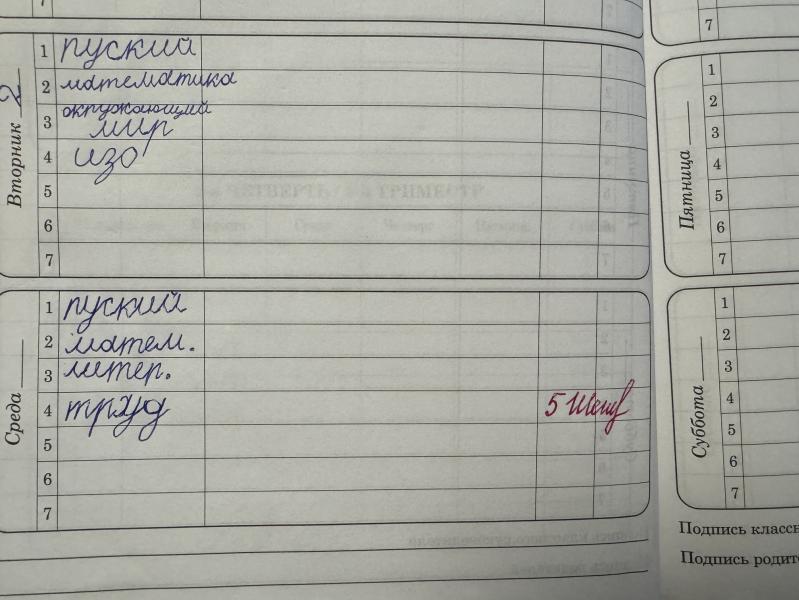 7
Вторник 2
1 пуский
2 математика
3 окружающий
мир
4 изо
5
6
7
Среда
1 пуский
2 матем.
3 литер.
4 труд 5
5
6
7
7
Пятница
1
2
3
4
5
6
7
Суббота
1
2
3
4
5
6
7
Подпись классн
Подпись родите